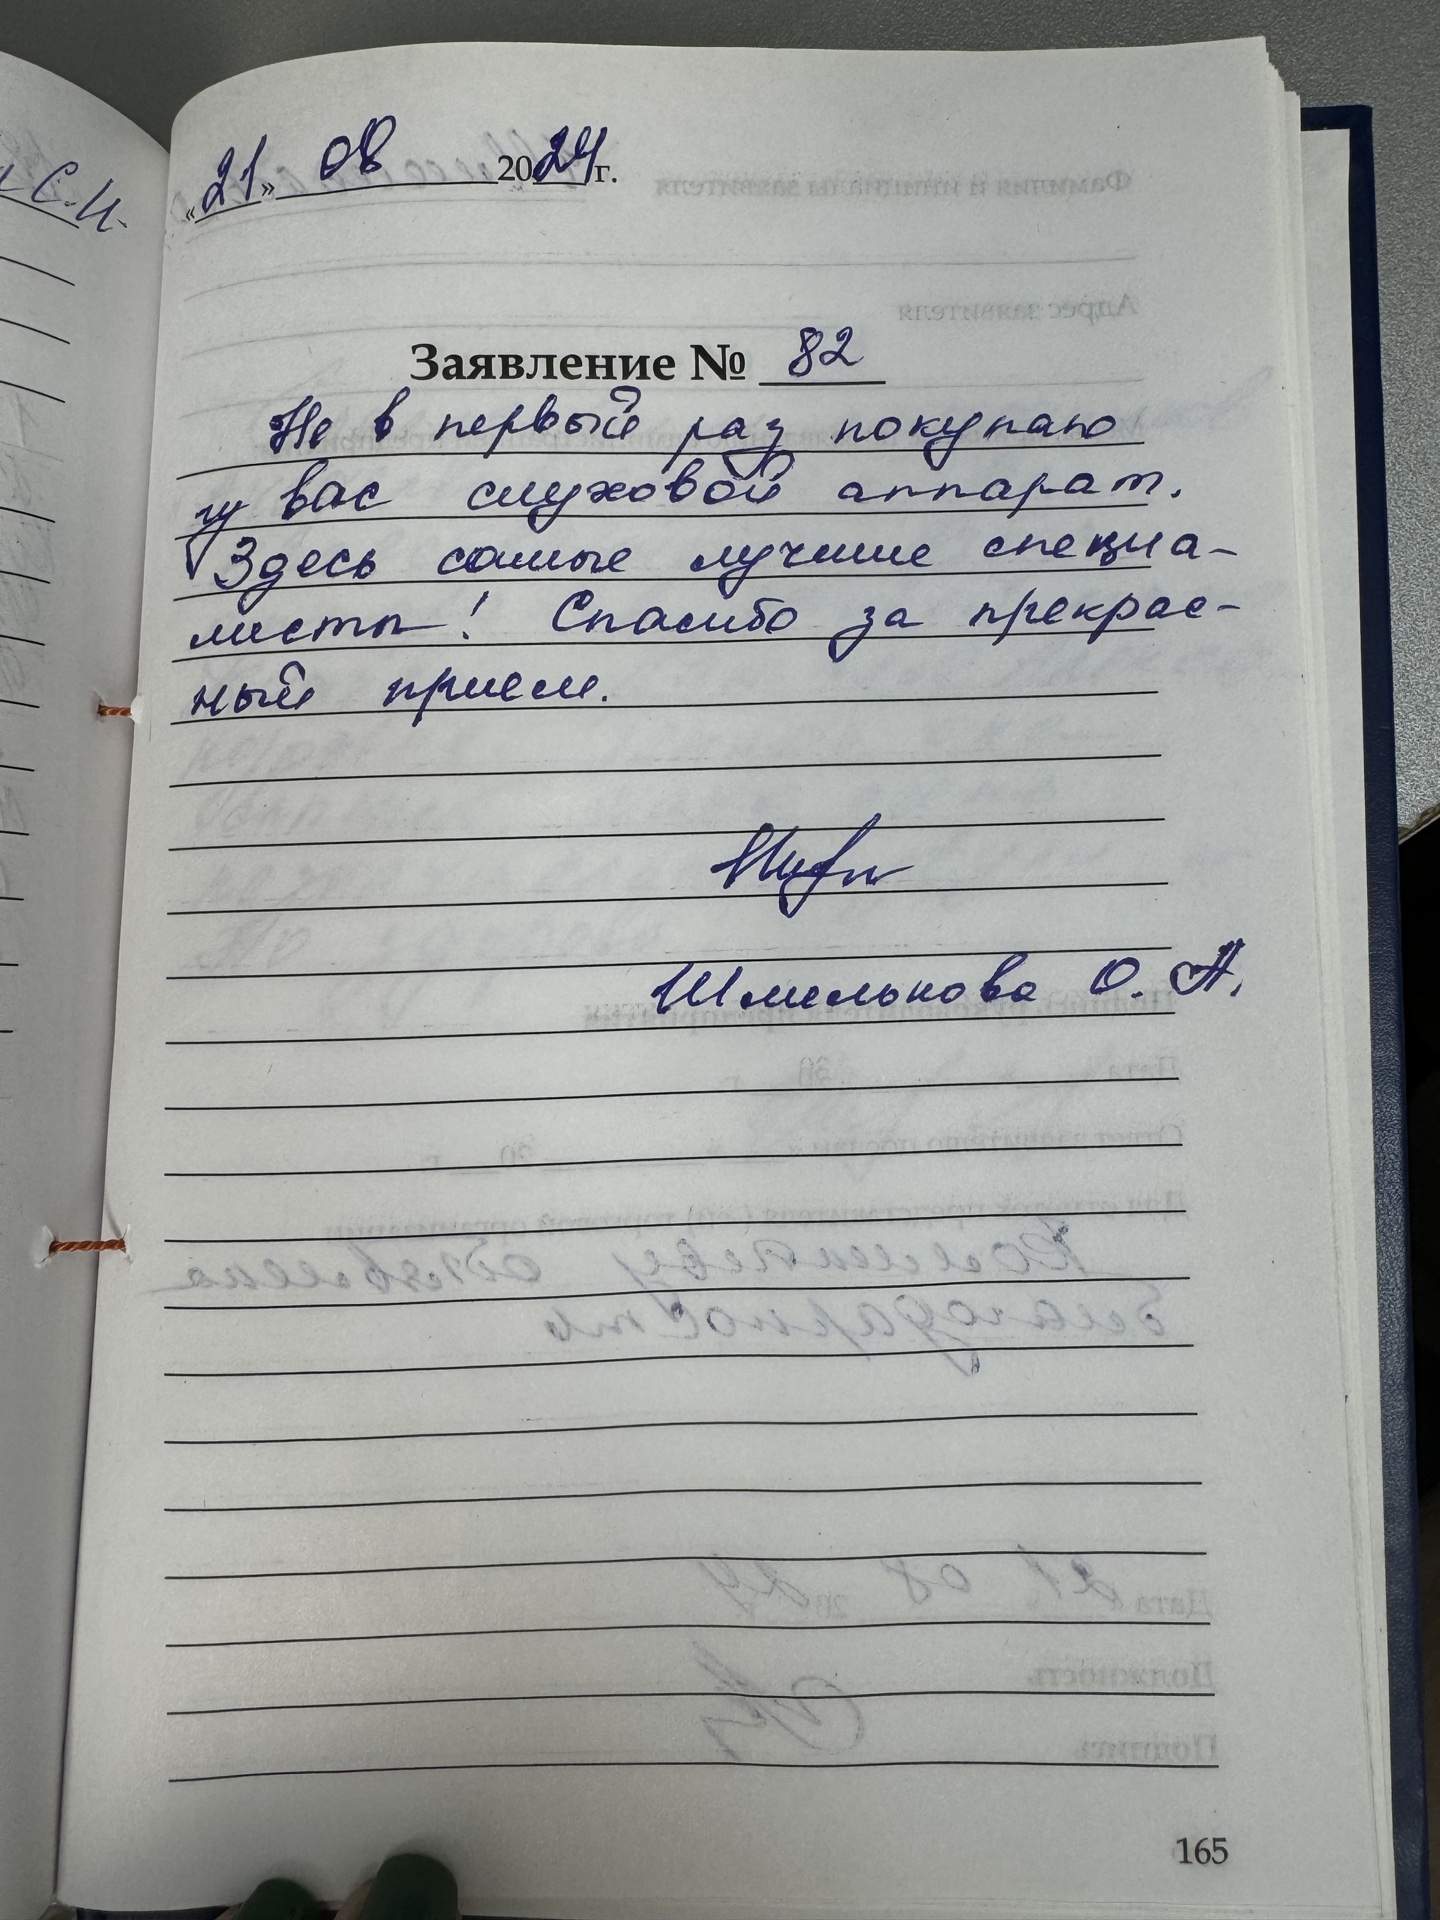 С.И.
«21» 08 2024 г.
Заявление № 82
Не в первый раз покупаю
у вас слуховой аппарат.
Здесь самые лучшие специа-
листы! Спасибо за прекрас-
ный прием.
Шмелькова О. А.
165